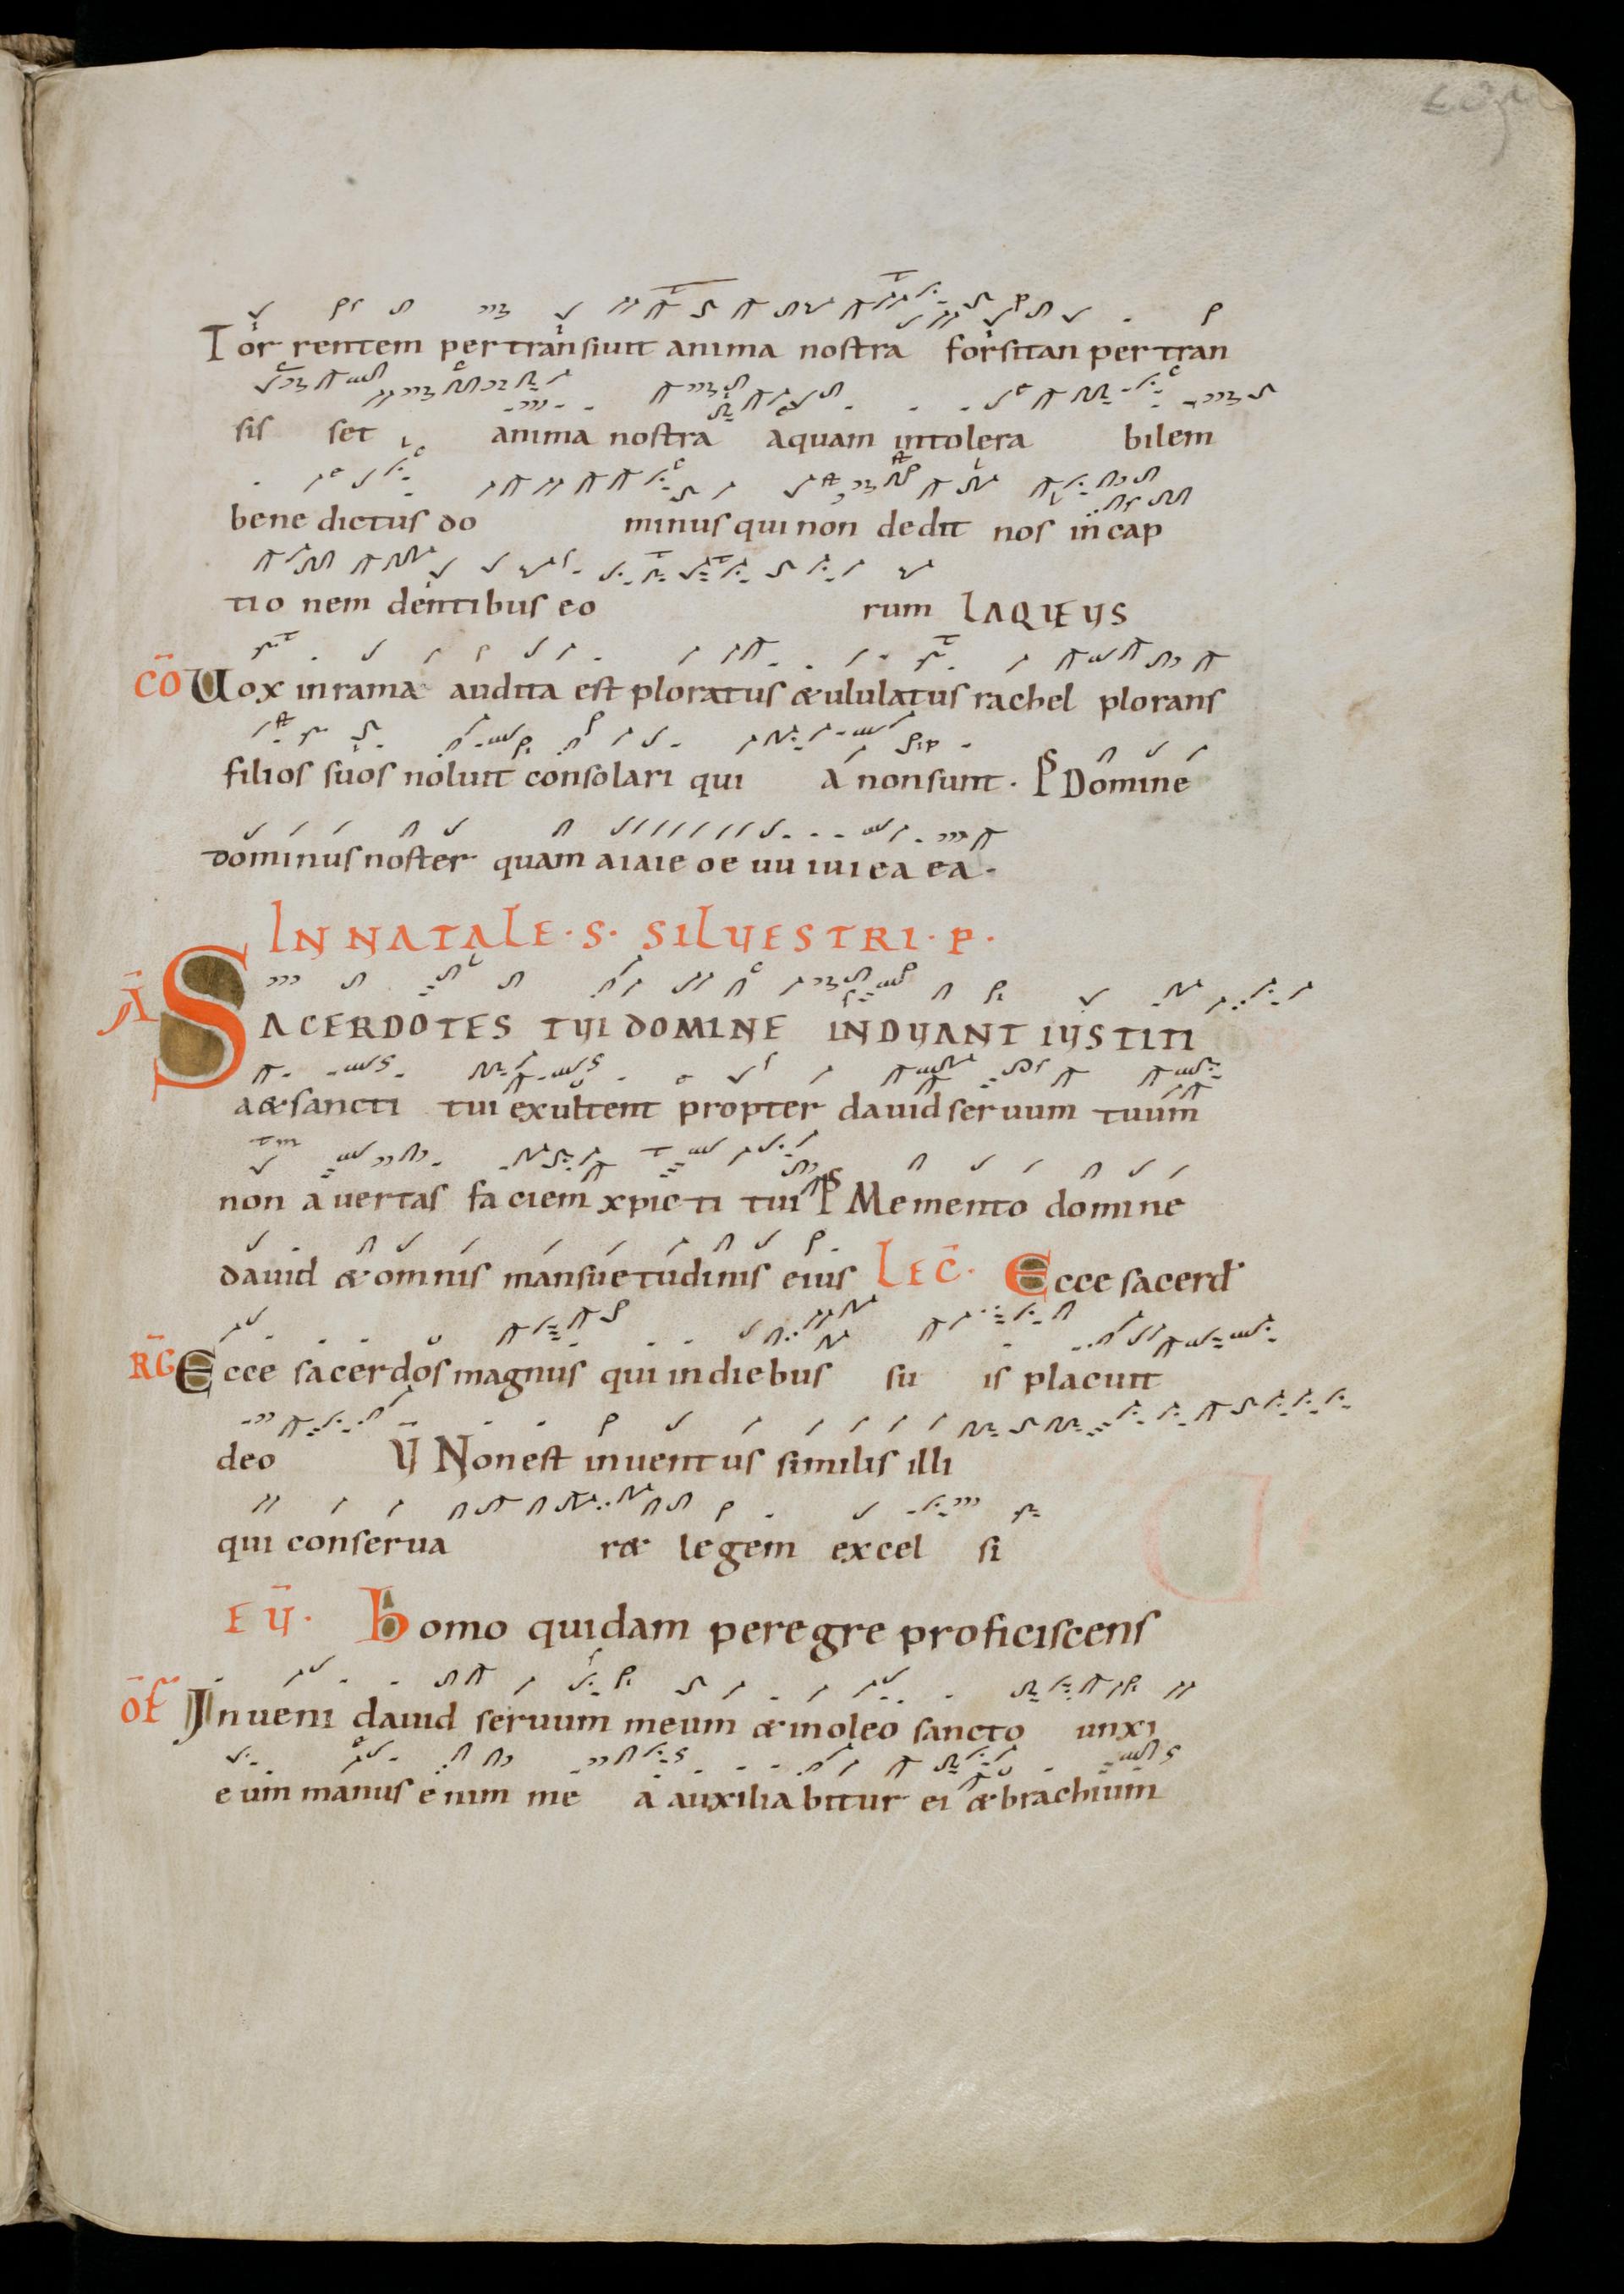 Tor rentem pertransiuit anima nostra forsitan pertran
sis set anima nostra aquam intolera bilem
bene dictus do minus qui non dedit nos in cap
tio nem dentibus eo rum LAQUEUS
CŌ Uox in rama audita est ploratus & ululatus rachel plorans
filios suos noluit consolari qui a non sunt. Ps Domine
dominus noster quam aiaie oe uu iui ea ea.
IN NATALE. S. SILUESTRI. P.
Ā SACERDOTES TUI DOMINE INDUANT IUSTITI
a & sancti tui exultent propter dauid seruum tuum
non a uertas faciem xpicti tui Ps Memento domine
dauid & omnis mansuetudinis eius LEC̄. Ecce sacerd
RḠ Ecce sacerdos magnus qui in diebus su is placuit
deo V̄ Non est inuentus similis illi
qui conserua r& legem excel si
EV̄. Homo quidam peregre proficiscens
ŌF Inueni dauid seruum meum & in oleo sancto unxi
eum manus enim me a auxilia bitur ei & brachium